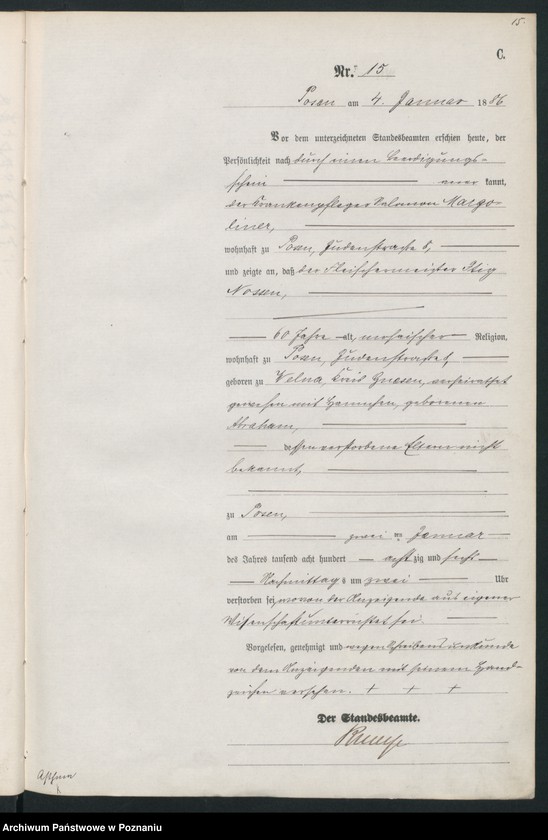 15.
C.
Nr. 15
Posen am 4. Januar 1886
Vor dem unterzeichneten Standesbeamten erschien heute, der
Persönlichkeit nach durch einen Beerdigungs-
schein kannt,
der Krankenpfleger Salomon Margo-
liner,
wohnhaft zu Posen, Judenstraße
und zeigte an, daß der Fleischermeister Itzig
Nossen,
60 Jahre alt, mosaischer Religion,
wohnhaft zu Posen, Judenstraße
geboren zu Welna, Kreis Gnesen, verheirathet
gewesen mit Hannchen, geborenen
Abraham,
dessen verstorbene Eltern nicht
bekannt,
zu Posen,
am zwei ten Januar
des Jahres tausend acht hundert achtzig und sechs
Nachmittags um zwei Uhr
verstorben sei, wovon der Anzeigende aus eigener
Wissenschaft unterrichtet sei.
Vorgelesen, genehmigt und wegen Schreibensunkunde
von dem Anzeigenden mit seinem Hand-
zeichen versehen. + + +
Der Standesbeamte.
Archiwum Państwowe w Poznaniu